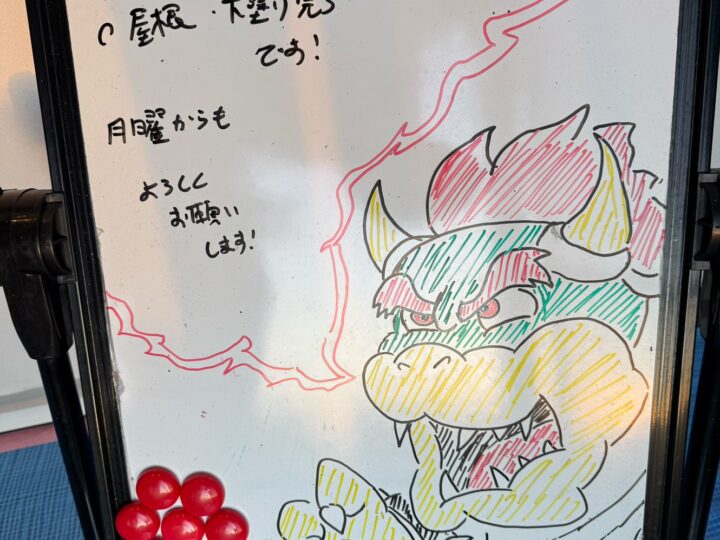 屋根・塗り完
です!
月曜からも
よろしく
お願い
します!